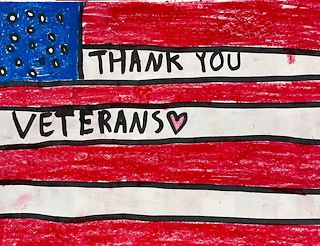 THANK YOU
VETERANS♡